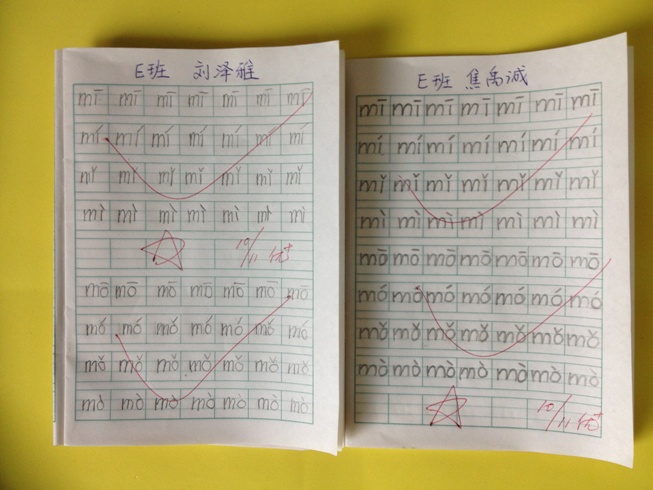 E班 刘泽雅
mī mī mī mī mī mī mī
mí mí mí mí mí mí mí
mǐ mǐ mǐ mǐ mǐ mǐ mǐ
mì mì mì mì mì mì mì
10/11 优+
mō mō mō mō mō mō mō
mó mó mó mó mó mó mó
mǒ mǒ mǒ mǒ mǒ mǒ mǒ
mò mò mò mò mò mò mò
E班 焦禹诚
mī mī mī mī mī mī mī
mí mí mí mí mí mí mí
mǐ mǐ mǐ mǐ mǐ mǐ mǐ
mì mì mì mì mì mì mì
mō mō mō mō mō mō mō
mó mó mó mó mó mó mó
mǒ mǒ mǒ mǒ mǒ mǒ mǒ
mò mò mò mò mò mò mò
10/11 优+